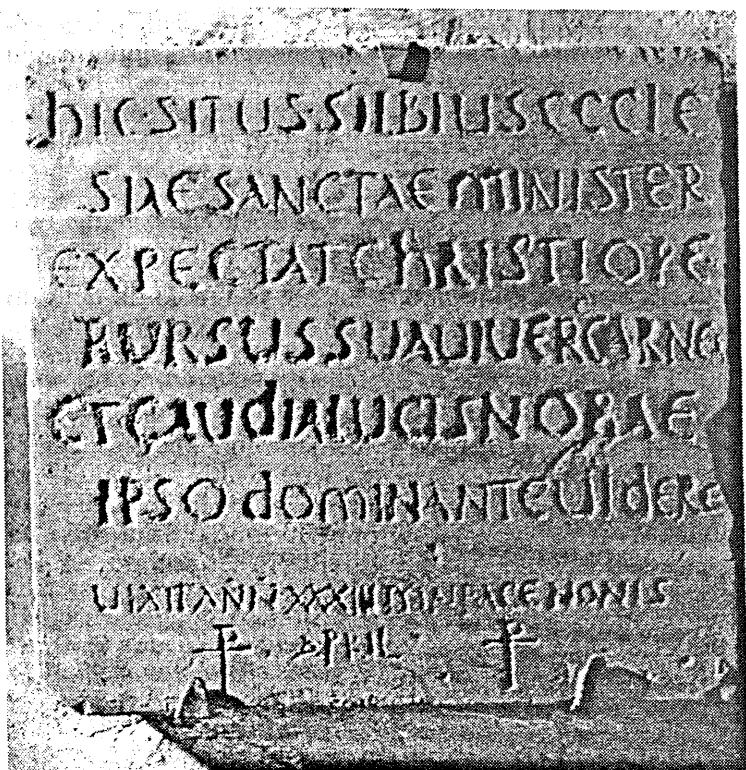 hIC SITUS SILBIUS ECCLE
SIAE SANCTAE MINISTER
EXPECTAT CHRISTI OPE
RURSUS SUA UIUERE CARNE
ET GAUdIA LUCIS NOBAE
IPSO dOMINANTE UIdERE
UIXIT ANN IN PACE NONIS
APRIL